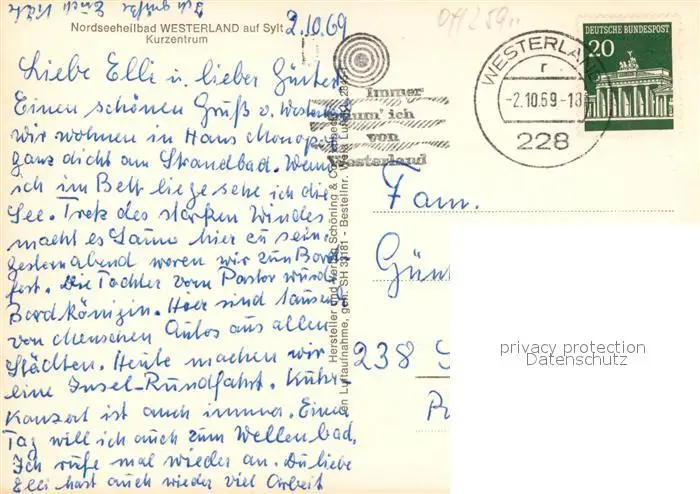 Nordseeheilbad WESTERLAND auf Sylt
Kurzentrum
2.10.69
Liebe Elli u. lieber Günter
Einen schönen Gruß v. Westerland
wir wohnen in Haus Monop.
ganz dicht am Strandbad. Wenn
ich im Bett liege sehe ich die
See. Trotz des starken Windes
macht es Laune hier zu sein.
gestern abend waren wir zum Bord-
fest. Die Tochter vom Pastor wurde
Bordkönigin. Hier sind tausend
von Menschen Autos aus allen
Städten. Heute machen wir
eine Insel-Rundfahrt. Kurkonzert
ist auch immer. Einen
Tag will ich auch zum Wellenbad,
Ich rufe mal wieder an. Du liebe
Elli hast auch wieder viel Arbeit
Hersteller und Verlag Schöning &
gen. SH 33181 - Bestellnr.
Immer
träum' ich
von
Westerland
WESTERLAND
r
-2.10.69-18
228
DEUTSCHE BUNDESPOST
20
Fam.
Günt
238
privacy protection
Datenschutz